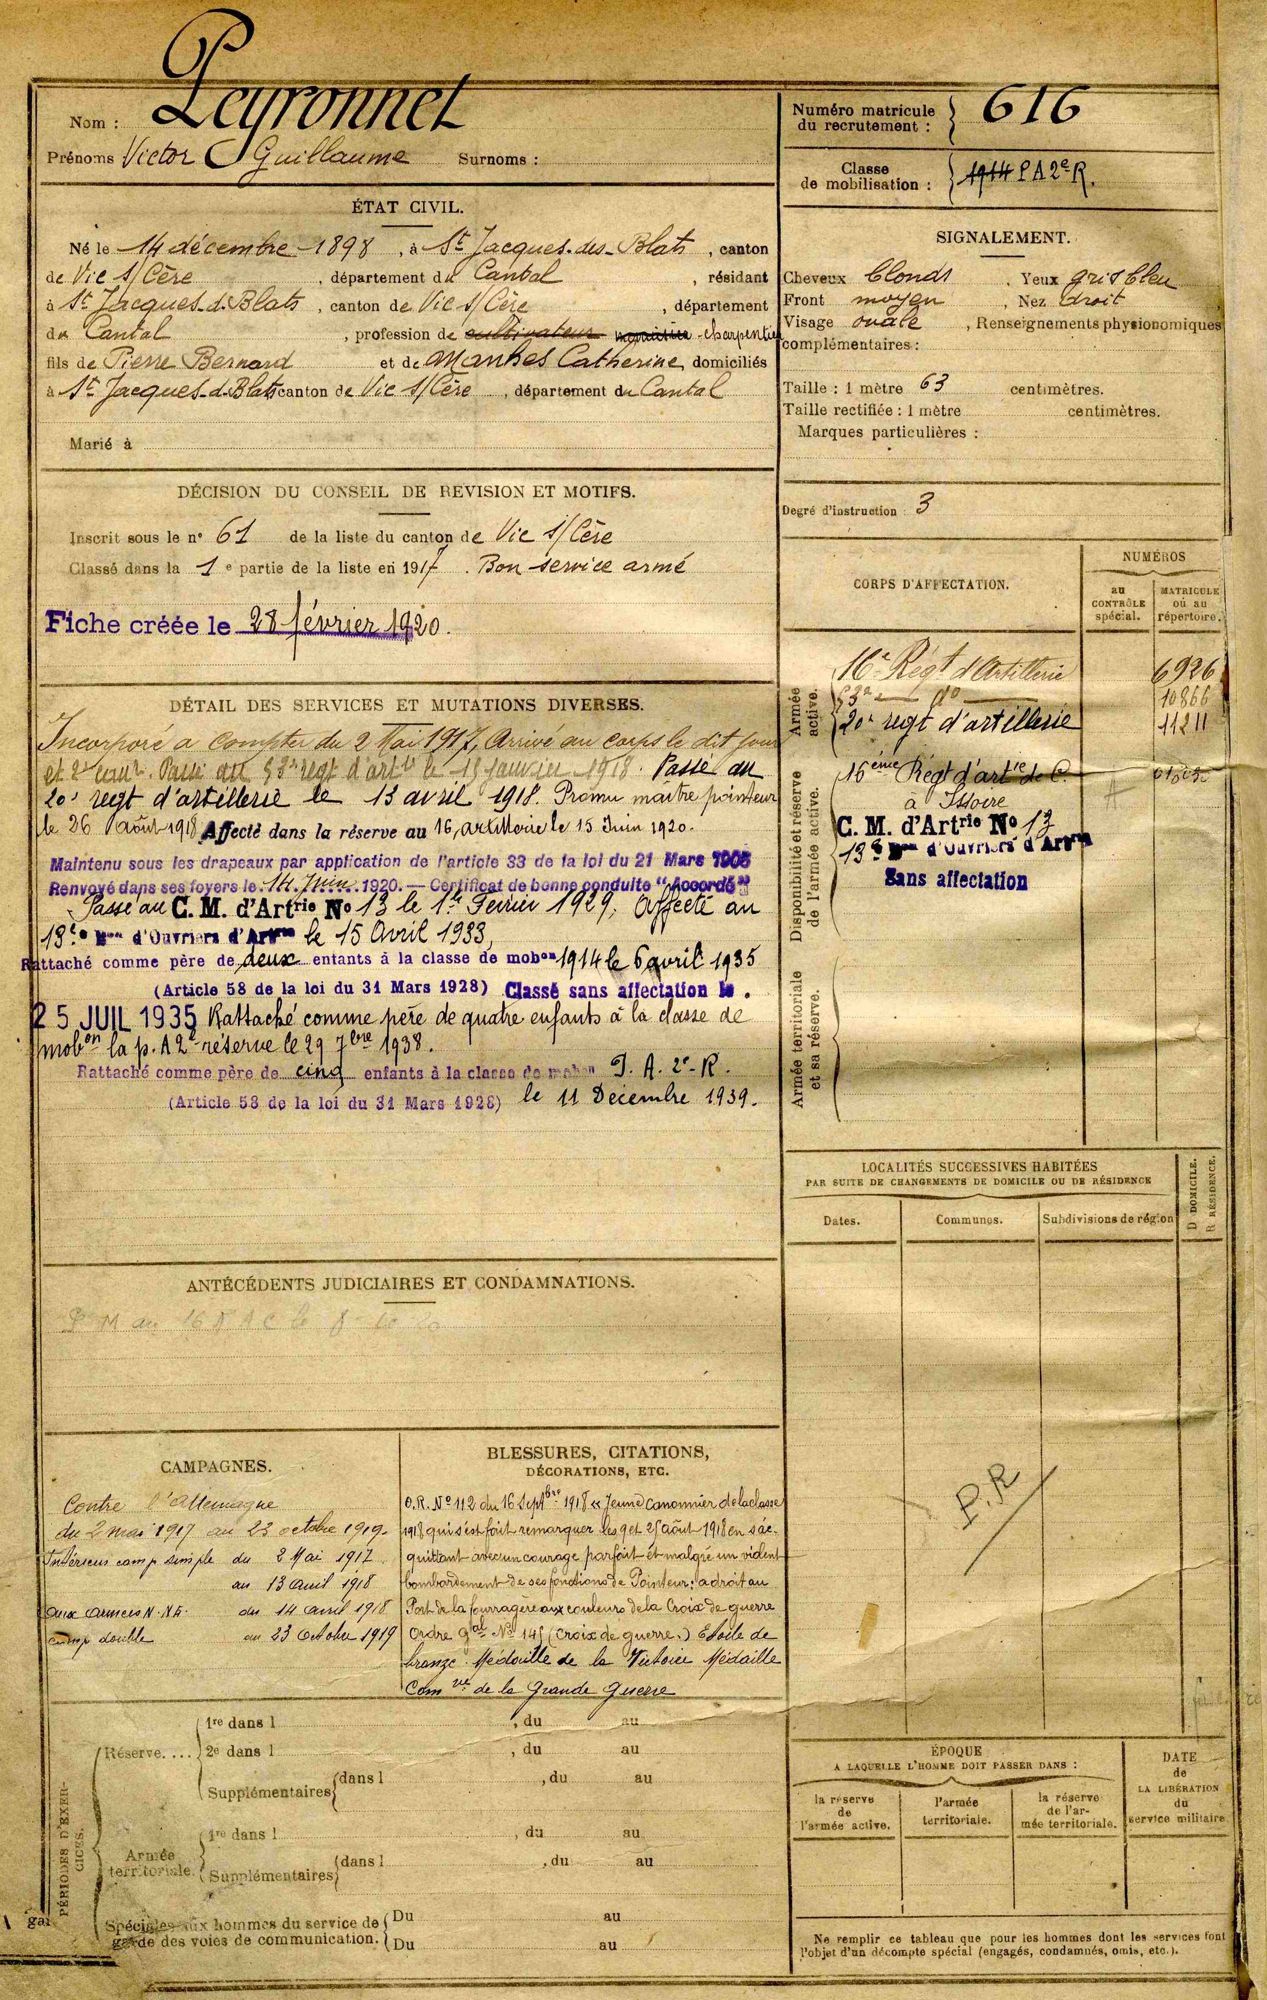 Nom : Peyronnet
Prénoms Victor Guillaume Surnoms :
Numéro matricule
du recrutement : 616
Classe
de mobilisation : 1914 P A 2e R.
ÉTAT CIVIL.
Né le 14 décembre 1898, à St Jacques-des-Blats, canton
de Vic s/Cère, département du Cantal, résidant
à St Jacques-d-Blats, canton de Vic s/Cère, département
du Cantal, profession de cultivateur menuisier-charpentier
fils de Pierre Bernard et de Manhes Catherine, domiciliés
à St Jacques-d-Blats canton de Vic s/Cère, département du Cantal
Marié à
SIGNALEMENT.
Cheveux blonds, Yeux gris bleu
Front moyen, Nez droit
Visage ovale, Renseignements physionomiques
complémentaires :
Taille : 1 mètre 63 centimètres.
Taille rectifiée : 1 mètre centimètres.
Marques particulières :
Degré d'instruction : 3
DÉCISION DU CONSEIL DE REVISION ET MOTIFS.
Inscrit sous le n° 61 de la liste du canton de Vic s/Cère
Classé dans la 1e partie de la liste en 1917. Bon service armé
Fiche créée le 28 février 1920.
CORPS D'AFFECTATION.
NUMÉROS
au CONTRÔLE spécial.
MATRICULE ou au répertoire.
Armée active.
16e Régt d'Artillerie 6926
53e — do — 10866
20e regt d'artillerie 11211
Disponibilité et réserve de l'armée active.
16ème Régt d'artie de C.
à Issoire
C. M. d'Artrie No 13
13e Bon d'Ouvriers d'Artrie
Sans affectation
Armée territoriale et sa réserve.
DÉTAIL DES SERVICES ET MUTATIONS DIVERSES.
Incorporé à compter du 2 Mai 1917, Arrivé au corps le dit jour
et 2e canr. Passé au 53e régt d'artie le 15 janvier 1918. Passé au
20e regt d'artillerie le 13 avril 1918. Promu maitre pointeur
le 26 août 1918 Affecté dans la réserve au 16, artillerie le 15 Juin 1920.
Maintenu sous les drapeaux par application de l'article 33 de la loi du 21 Mars 1905
Renvoyé dans ses foyers le 14 Juin 1920. — Certificat de bonne conduite "Accordé"
Passé au C. M. d'Artrie No 13 le 1er Février 1929, Affecté au
13e Bon d'Ouvriers d'Artrie le 15 Avril 1933,
Rattaché comme père de deux enfants à la classe de mobon 1914 le 6 avril 1935
(Article 58 de la loi du 31 Mars 1928) Classé sans affectation le.
25 JUIL 1935 Rattaché comme père de quatre enfants à la classe de
mobon la p. A 2e réserve le 29 7bre 1938.
Rattaché comme père de cinq enfants à la classe de mobon P. A. 2e-R.
(Article 58 de la loi du 31 Mars 1928) le 11 Décembre 1939.
LOCALITÉS SUCCESSIVES HABITÉES
PAR SUITE DE CHANGEMENTS DE DOMICILE OU DE RÉSIDENCE
Dates. Communes. Subdivisions de région
D DOMICILE.
R RÉSIDENCE.
P.R
ANTÉCÉDENTS JUDICIAIRES ET CONDAMNATIONS.
CAMPAGNES.
Contre l'Allemagne
du 2 mai 1917 au 23 octobre 1919.
Intérieur camp simple du 2 Mai 1917
au 13 avril 1918
aux armées N. NE. du 14 avril 1918
camp double au 23 Octobre 1919
BLESSURES, CITATIONS,
DÉCORATIONS, ETC.
O.R. No 112 du 16 Septbre 1918 « Jeune canonnier de la classe
1918 qui s'est fait remarquer les 9 et 25 août 1918 en s'ac-
quittant avec un courage parfait et malgré un violent
bombardement de ses fonctions de Pointeur: a droit au
Port de la fourragère aux couleurs de la Croix de guerre
Ordre gal No 145 (Croix de guerre.) Etoile de
bronze. Médaille de la Victoire Médaille
Comve de la Grande Guerre
PÉRIODES D'EXERCICES.
Réserve....
1re dans l , du au
2e dans l , du au
Supplémentaires dans l , du au
Armée territoriale.
1re dans l , du au
Supplémentaires dans l , du au
Spéciales aux hommes du service de
garde des voies de communication.
Du au
Du au
ÉPOQUE
A LAQUELLE L'HOMME DOIT PASSER DANS :
la réserve de l'armée active.
l'armée territoriale.
la réserve de l'armée territoriale.
DATE de LA LIBÉRATION du service militaire
Ne remplir ce tableau que pour les hommes dont les services font
l'objet d'un décompte spécial (engagés, condamnés, omis, etc.).